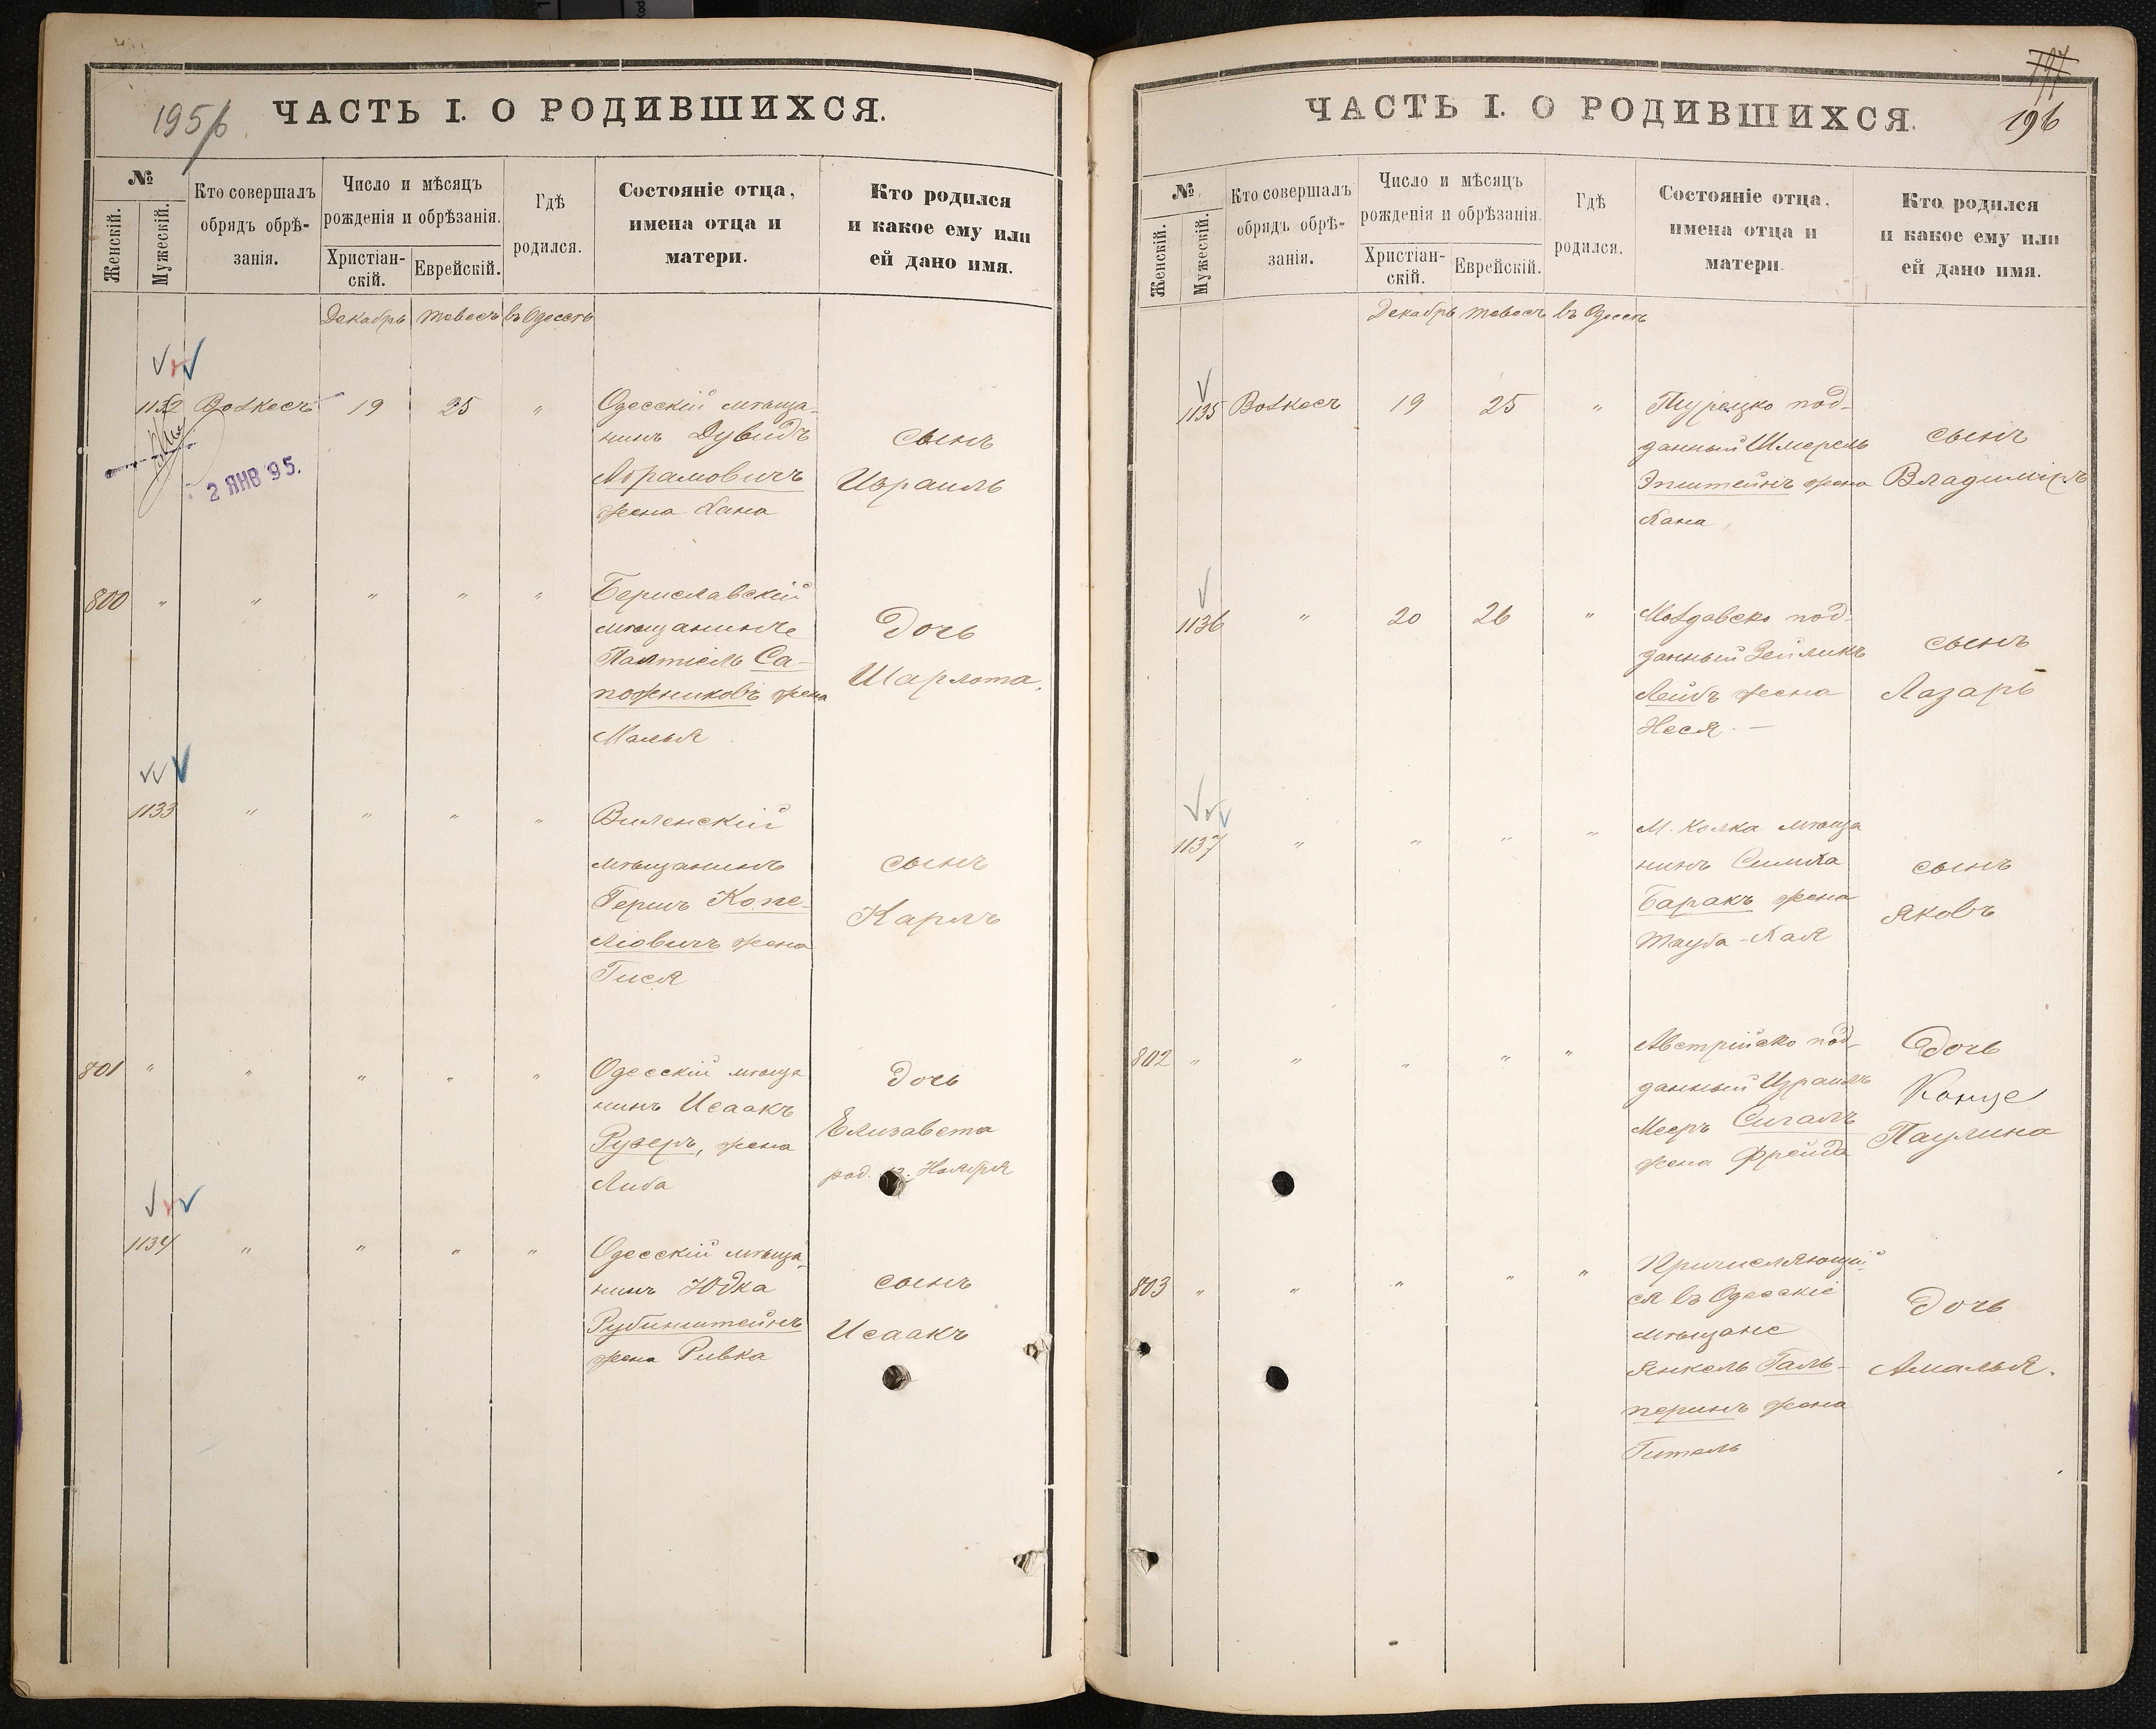 195/б. ЧАСТЬ I. О РОДИВШИХСЯ.
№
Женскій.
Мужескій.
Кто совершалъ
обрядъ обрѣ-
занія.
Число и мѣсяцъ
рожденія и обрѣзанія.
Христіан-
скій.
Еврейскій.
Гдѣ
родился.
Состояніе отца,
имена отца и
матери.
Кто родился
и какое ему или
ей дано имя.
Декабрь Тевесъ въ Одессѣ
1132 Волкесъ 19 25 „ Одесскій мѣща-
нинъ Дувидъ
Абрамовичъ
жена Хана
сынъ
Израиль
2 ЯНВ 95.
800 „ „ „ „ „ Бериславскій
мѣщанинъ
Палтіель Са-
пожниковъ жена
Малья
Дочь
Шарлота.
1133 „ „ „ „ Виленскій
мѣщанинъ
Гершъ Копе-
ліовичъ жена
Гися
сынъ
Карлъ
801 „ „ „ „ „ Одесскій мѣща
нинъ Исаакъ
Рузеръ, жена
Либа
Дочь
Елизавета
род. Ноября
1134 „ „ „ „ Одесскій мѣща-
нинъ Юдка
Рубинштейнъ
жена Ривка
сынъ
Исаакъ
197
196
ЧАСТЬ I. О РОДИВШИХСЯ.
№
Женскій.
Мужескій.
Кто совершалъ
обрядъ обрѣ-
занія.
Число и мѣсяцъ
рожденія и обрѣзанія.
Христіан-
скій.
Еврейскій.
Гдѣ
родился.
Состояніе отца,
имена отца и
матери.
Кто родился
и какое ему или
ей дано имя.
Декабрь Тевесъ въ Одессѣ
1135 Волкесъ 19 25 „ Турецко под-
данный Шмерель
Эпштейнъ жена
Хана
сынъ
Владиміръ
1136 „ 20 26 „ Молдавско под-
данный Зейликъ
Лейбъ жена
Неся. —
сынъ
Лазарь
1137 „ „ „ „ М. Колка мѣща
нинъ Симха
Баракъ жена
Тауба-Хая
сынъ
Яковъ
802 „ „ „ „ „ Австрійско под-
данный Израиль
Мееръ Сигалъ
жена Фрейда
Дочь
Паулина
803 „ „ „ „ „ Причисляющій-
ся въ Одесскіе
мѣщане
Янкель Галь-
перинъ жена
Гитель
Дочь
Амалья.